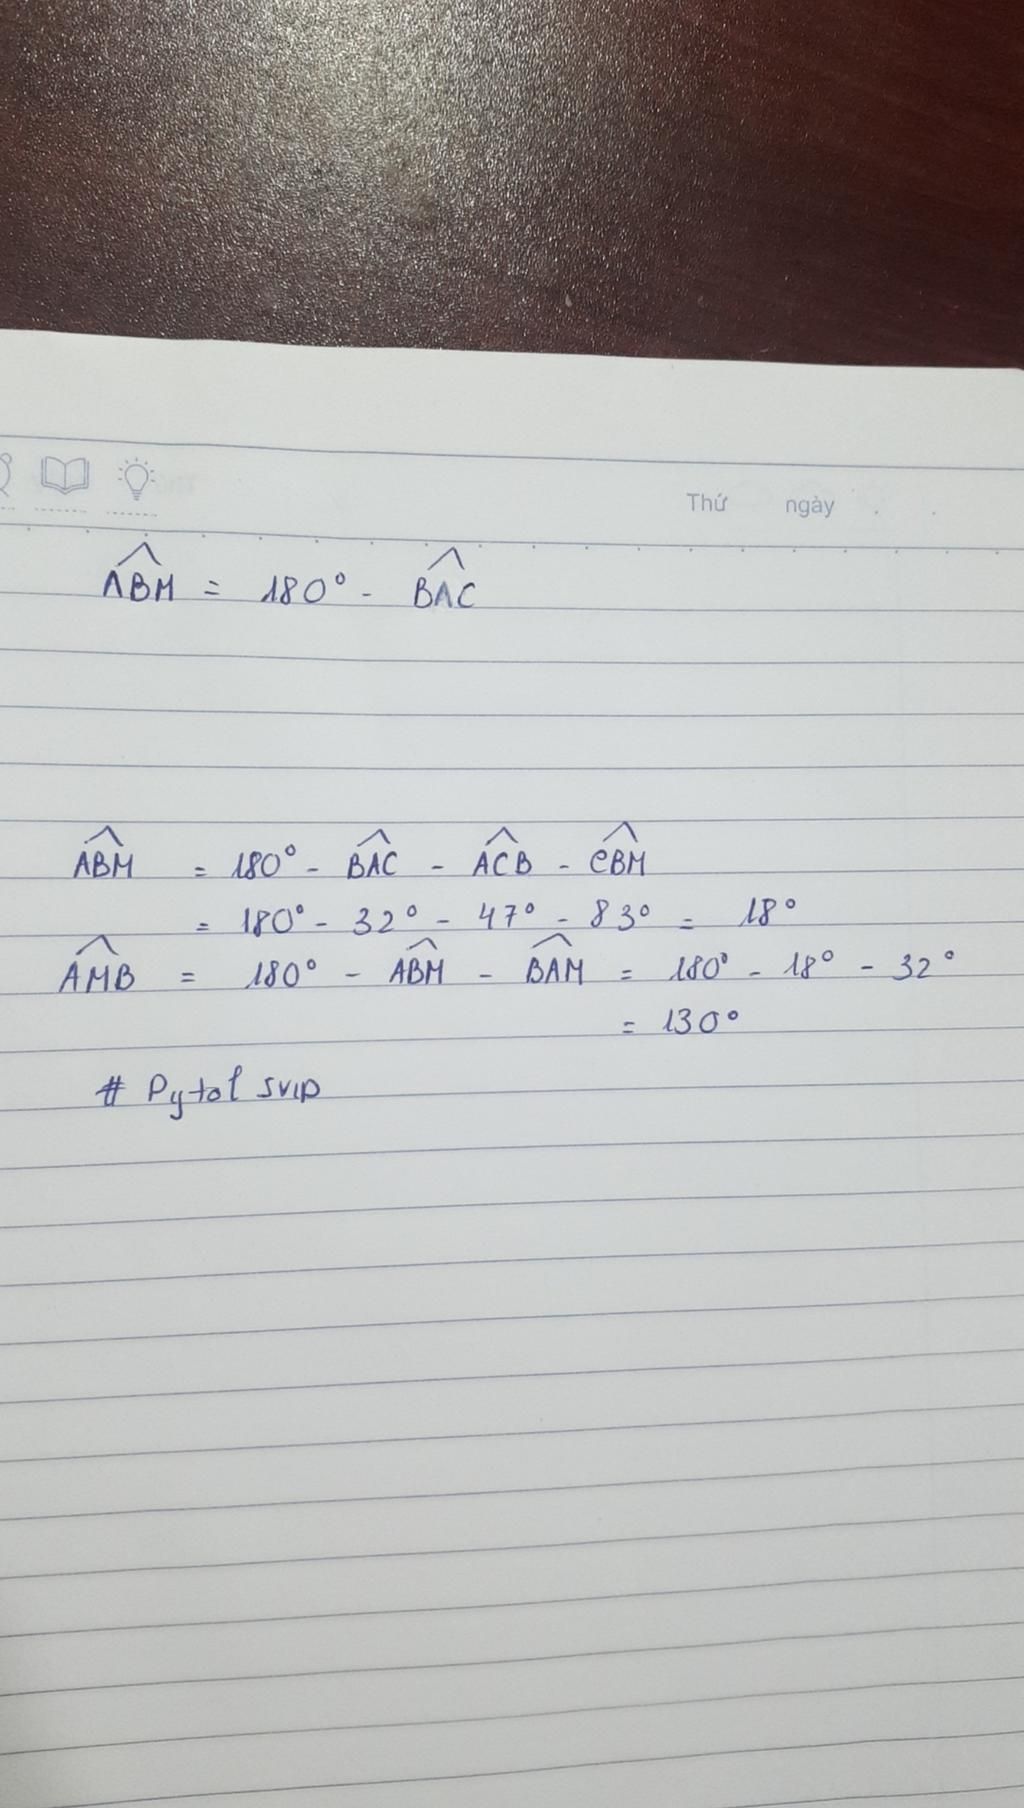 Thứ ngày
\widehat{ABM} = 180° - \widehat{BAC}
\widehat{ABM} = 180° - \widehat{BAC} - \widehat{ACB} - \widehat{CBM}
= 180° - 32° - 47° - 83° = 18°
\widehat{AMB} = 180° - \widehat{ABM} - \widehat{BAM} = 180° - 18° - 32°
= 130°
# Pytol svip